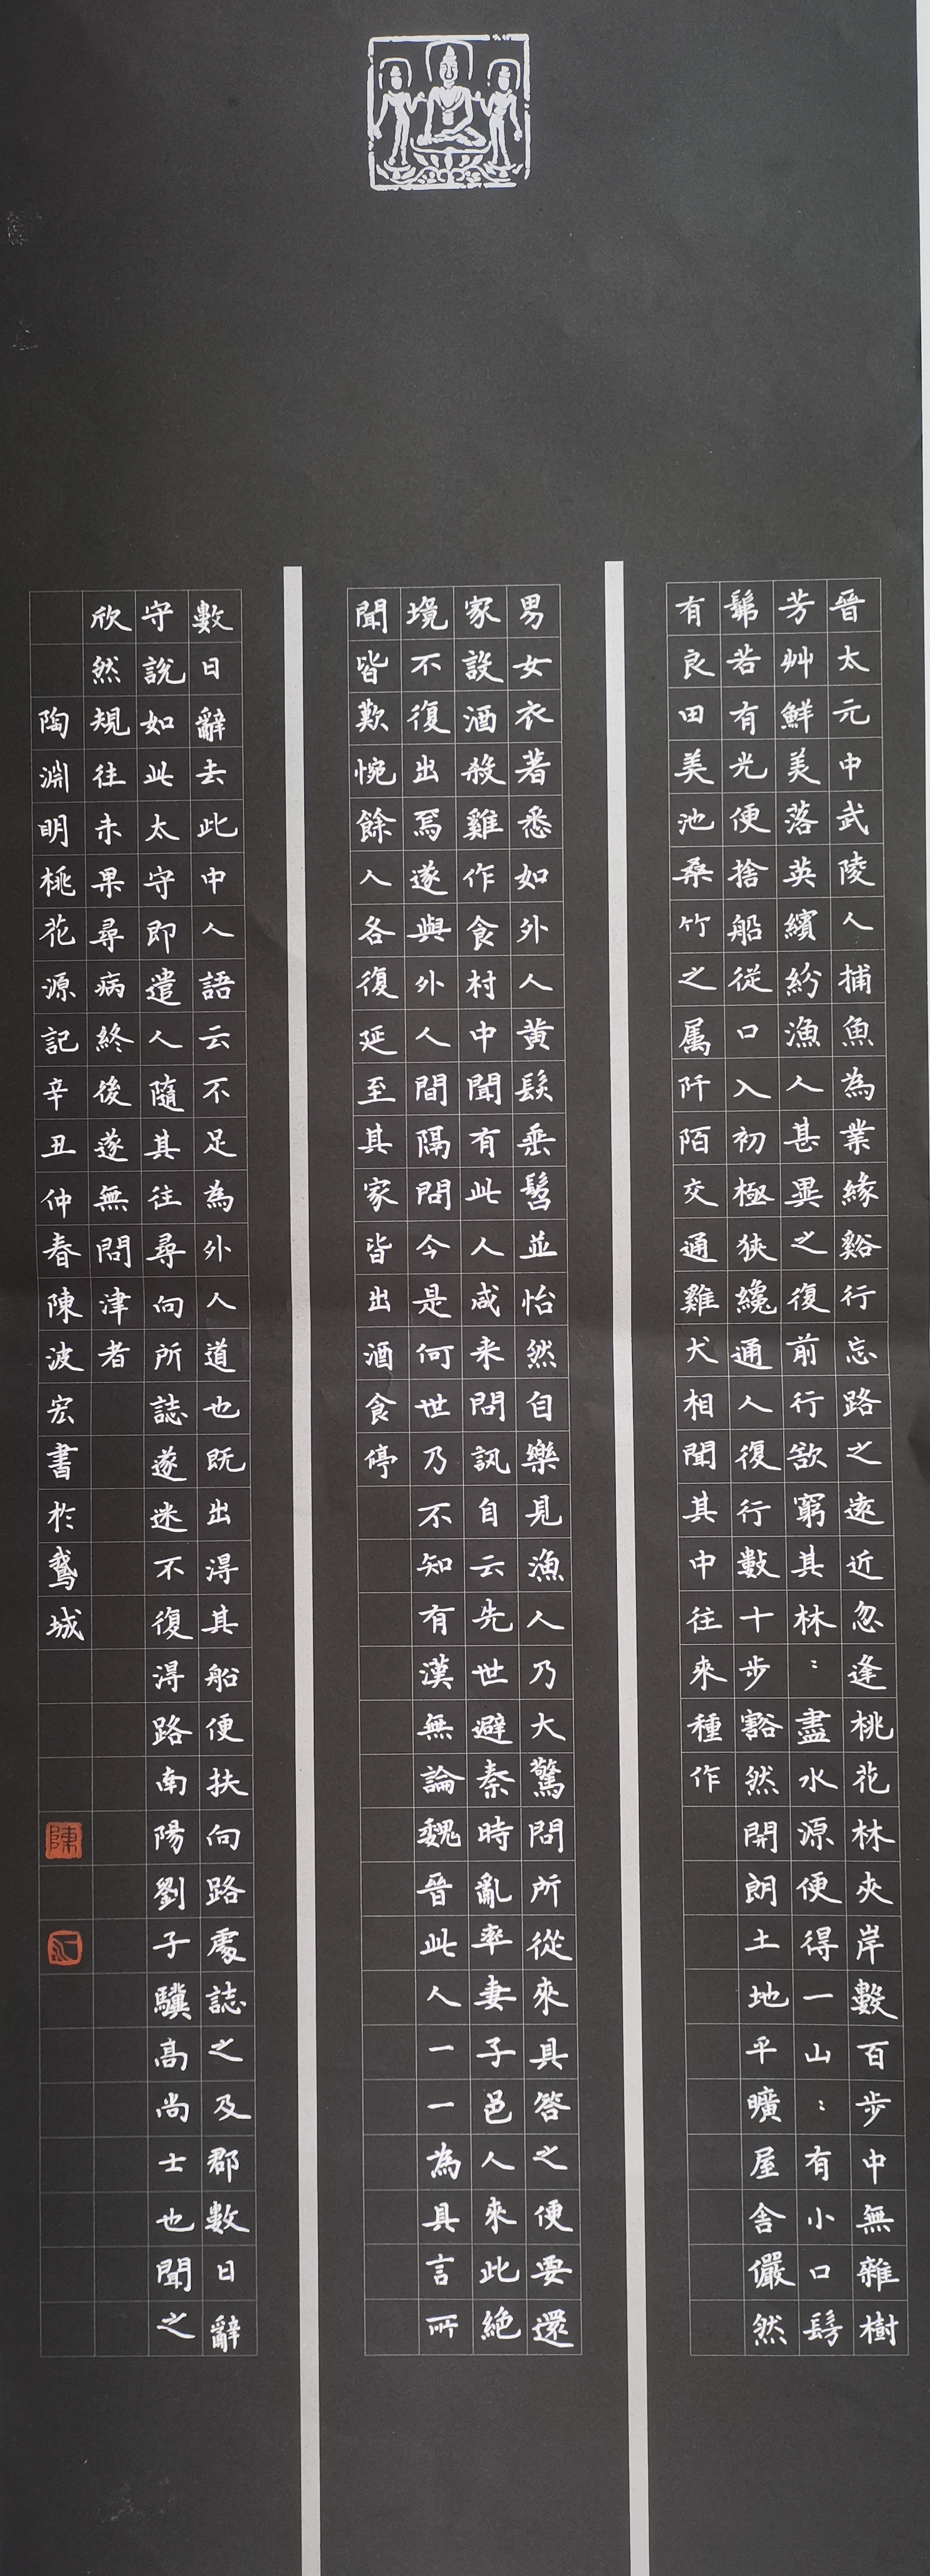 晉太元中武陵人捕魚為業緣谿行忘路之遠近忽逢桃花林夾岸數百步中無雜樹
芳艸鮮美落英繽紛漁人甚異之復前行欲窮其林：盡水源便得一山：有小口髣
髴若有光便捨船從口入初極狹纔通人復行數十步豁然開朗土地平曠屋舍儼然
有良田美池桑竹之属阡陌交通雞犬相聞其中往來種作
男女衣著悉如外人黄髮垂髫並怡然自樂見漁人乃大驚問所從來具答之便要還
家設酒殺雞作食村中聞有此人咸来問訊自云先世避秦時亂率妻子邑人來此絶
境不復出焉遂與外人間隔問今是何世乃不知有漢無論魏晉此人一一為具言所
聞皆歎惋餘人各復延至其家皆出酒食停
數日辭去此中人語云不足為外人道也既出淂其船便扶向路處誌之及郡數日辭
守說如此太守即遣人隨其往尋向所誌遂迷不復淂路南陽劉子驥高尚士也聞之
欣然規往未果尋病終後遂無問津者
陶淵明桃花源記辛丑仲春陳波宏書於鵞城
陳